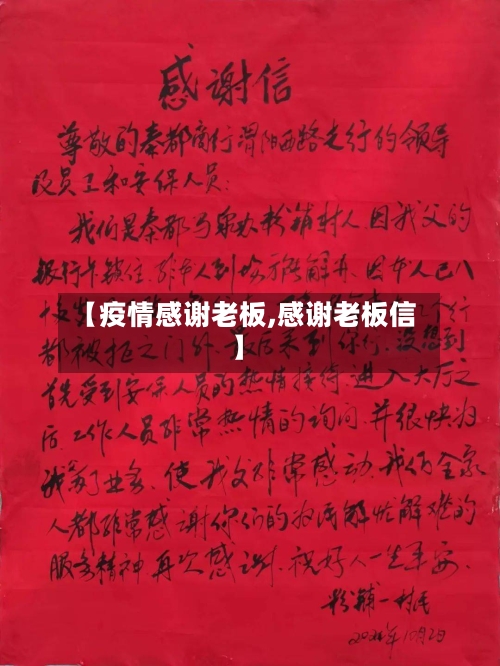 感谢信
尊敬的秦都商行渭阳西路支行的领导
及员工和安保人员:
我们是秦都马泉办粉铺村人,因我父的
银行卡锁住,非本人到场不能解开,因本人已八
【疫情感谢老板,感谢老板信
】
都被拒之门外,最后来到你行,没想到
首先受到安保人员的热情接待,进入大厅之
后,工作人员非常热情的询问,并很快为
我办了业务,使我父非常感动,我们全家
人都非常感谢你们的为民解忙解难的
服务精神再次感谢,祝好人一生平安、
粉铺一村民